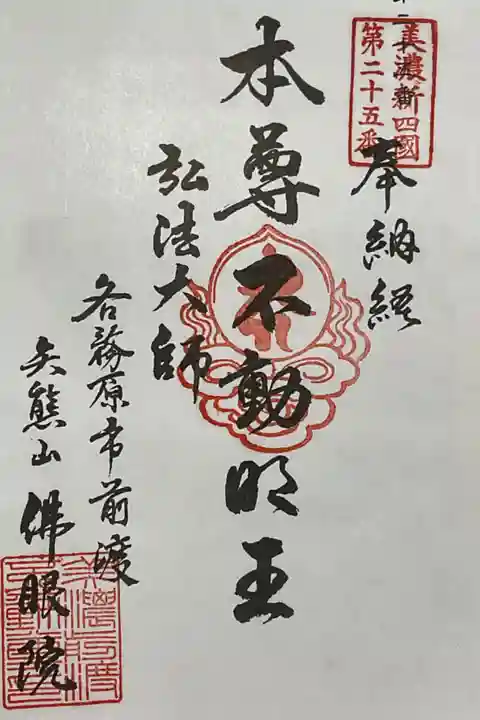 美濃新四國
第二十五番
奉納経
本尊不動明王
弘法大師
各務原市前渡
矢熊山 佛眼院